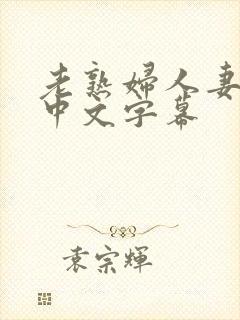 老熟婦人妻
中文字幕
袁宗輝